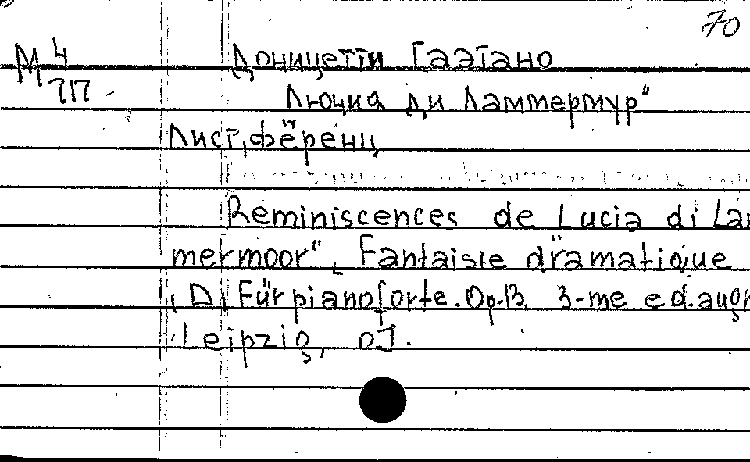 70
М 4
717
Доницетти Гаэтано
Лючиа ди Ламмермур"
Лист, Ференц
Reminiscences de Lucia di Lam
mermoor", Fantaisie dramatique
(D) Für pianoforte. Op.13. 3-me ed. augm
Leipzig, oJ.